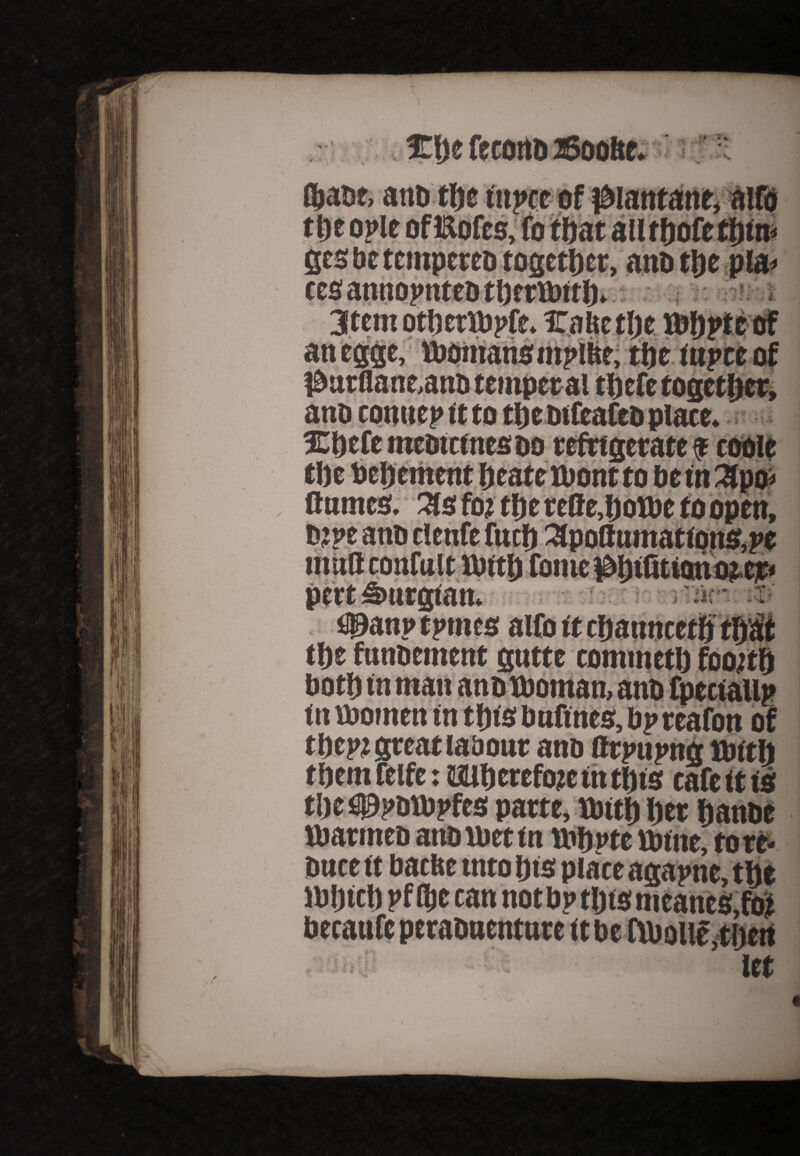 The second Booke.
shade, and the iuyce of Plantane, also
the oyle of Roses, so that all those thin-
ges be tempered together, and the pla-
ces annoynted therwith.
Item otherwyse. Take the whyte of
an egge, womans mylke, the iuyce of
Purslane, and temper al these together,
and conuey it to the diseased place.
These medicines do refrigerate & coole
the vehement heate wont to be in Apo-
stumes. As for the reste, howe to open,
drye and clense such Apostumations, ye
must consult with some Phisition or ex-
pert Surgian.
Many tymes also it chaunceth that
the fundement gutte commeth foorth
both in man and woman, and specially
in women in this busines, by reason of
theyr great labour and stryuyng with
them selfe: Wherefore in this case it is
the Mydwyfes parte, with her hande
warmed and wet in whyte wine, to re-
duce it backe into his place agayne, the
which yf she can not by this meanes, for
because peraduenture it be swollē, then
let